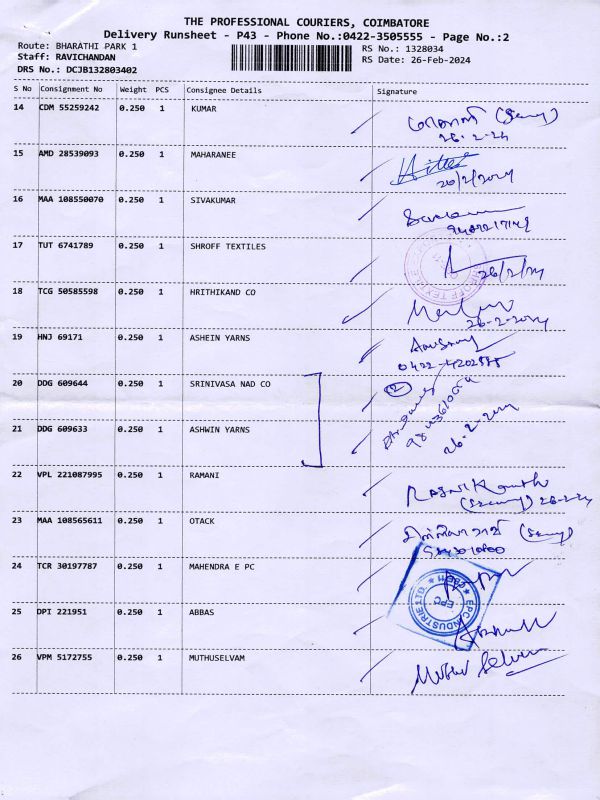 THE PROFESSIONAL COURIERS, COIMBATORE
Delivery Runsheet - P43 - Phone No.:0422-3505555 - Page No.:2
Route: BHARATHI PARK 1 RS No.: 1328034
Staff: RAVICHANDAN RS Date: 26-Feb-2024
DRS No.: DCJB132803402
S No Consignment No Weight PCS Consignee Details Signature
14 CDM 55259242 0.250 1 KUMAR
26-2-24
15 AMD 28539093 0.250 1 MAHARANEE
26/2/2024
16 MAA 108550070 0.250 1 SIVAKUMAR
17 TUT 6741789 0.250 1 SHROFF TEXTILES
26/2/24
18 TCG 50585598 0.250 1 HRITHIKAND CO
26-2-2024
19 HNJ 69171 0.250 1 ASHEIN YARNS
20 DDG 609644 0.250 1 SRINIVASA NAD CO
2
21 DDG 609633 0.250 1 ASHWIN YARNS
26-2-2024
22 VPL 221087995 0.250 1 RAMANI
26-2-24
23 MAA 108565611 0.250 1 OTACK
24 TCR 30197787 0.250 1 MAHENDRA E PC
EPC INDUSTRIE LTD.
EPC
25 DPI 221951 0.250 1 ABBAS
26 VPM 5172755 0.250 1 MUTHUSELVAM
Muthu Selvam